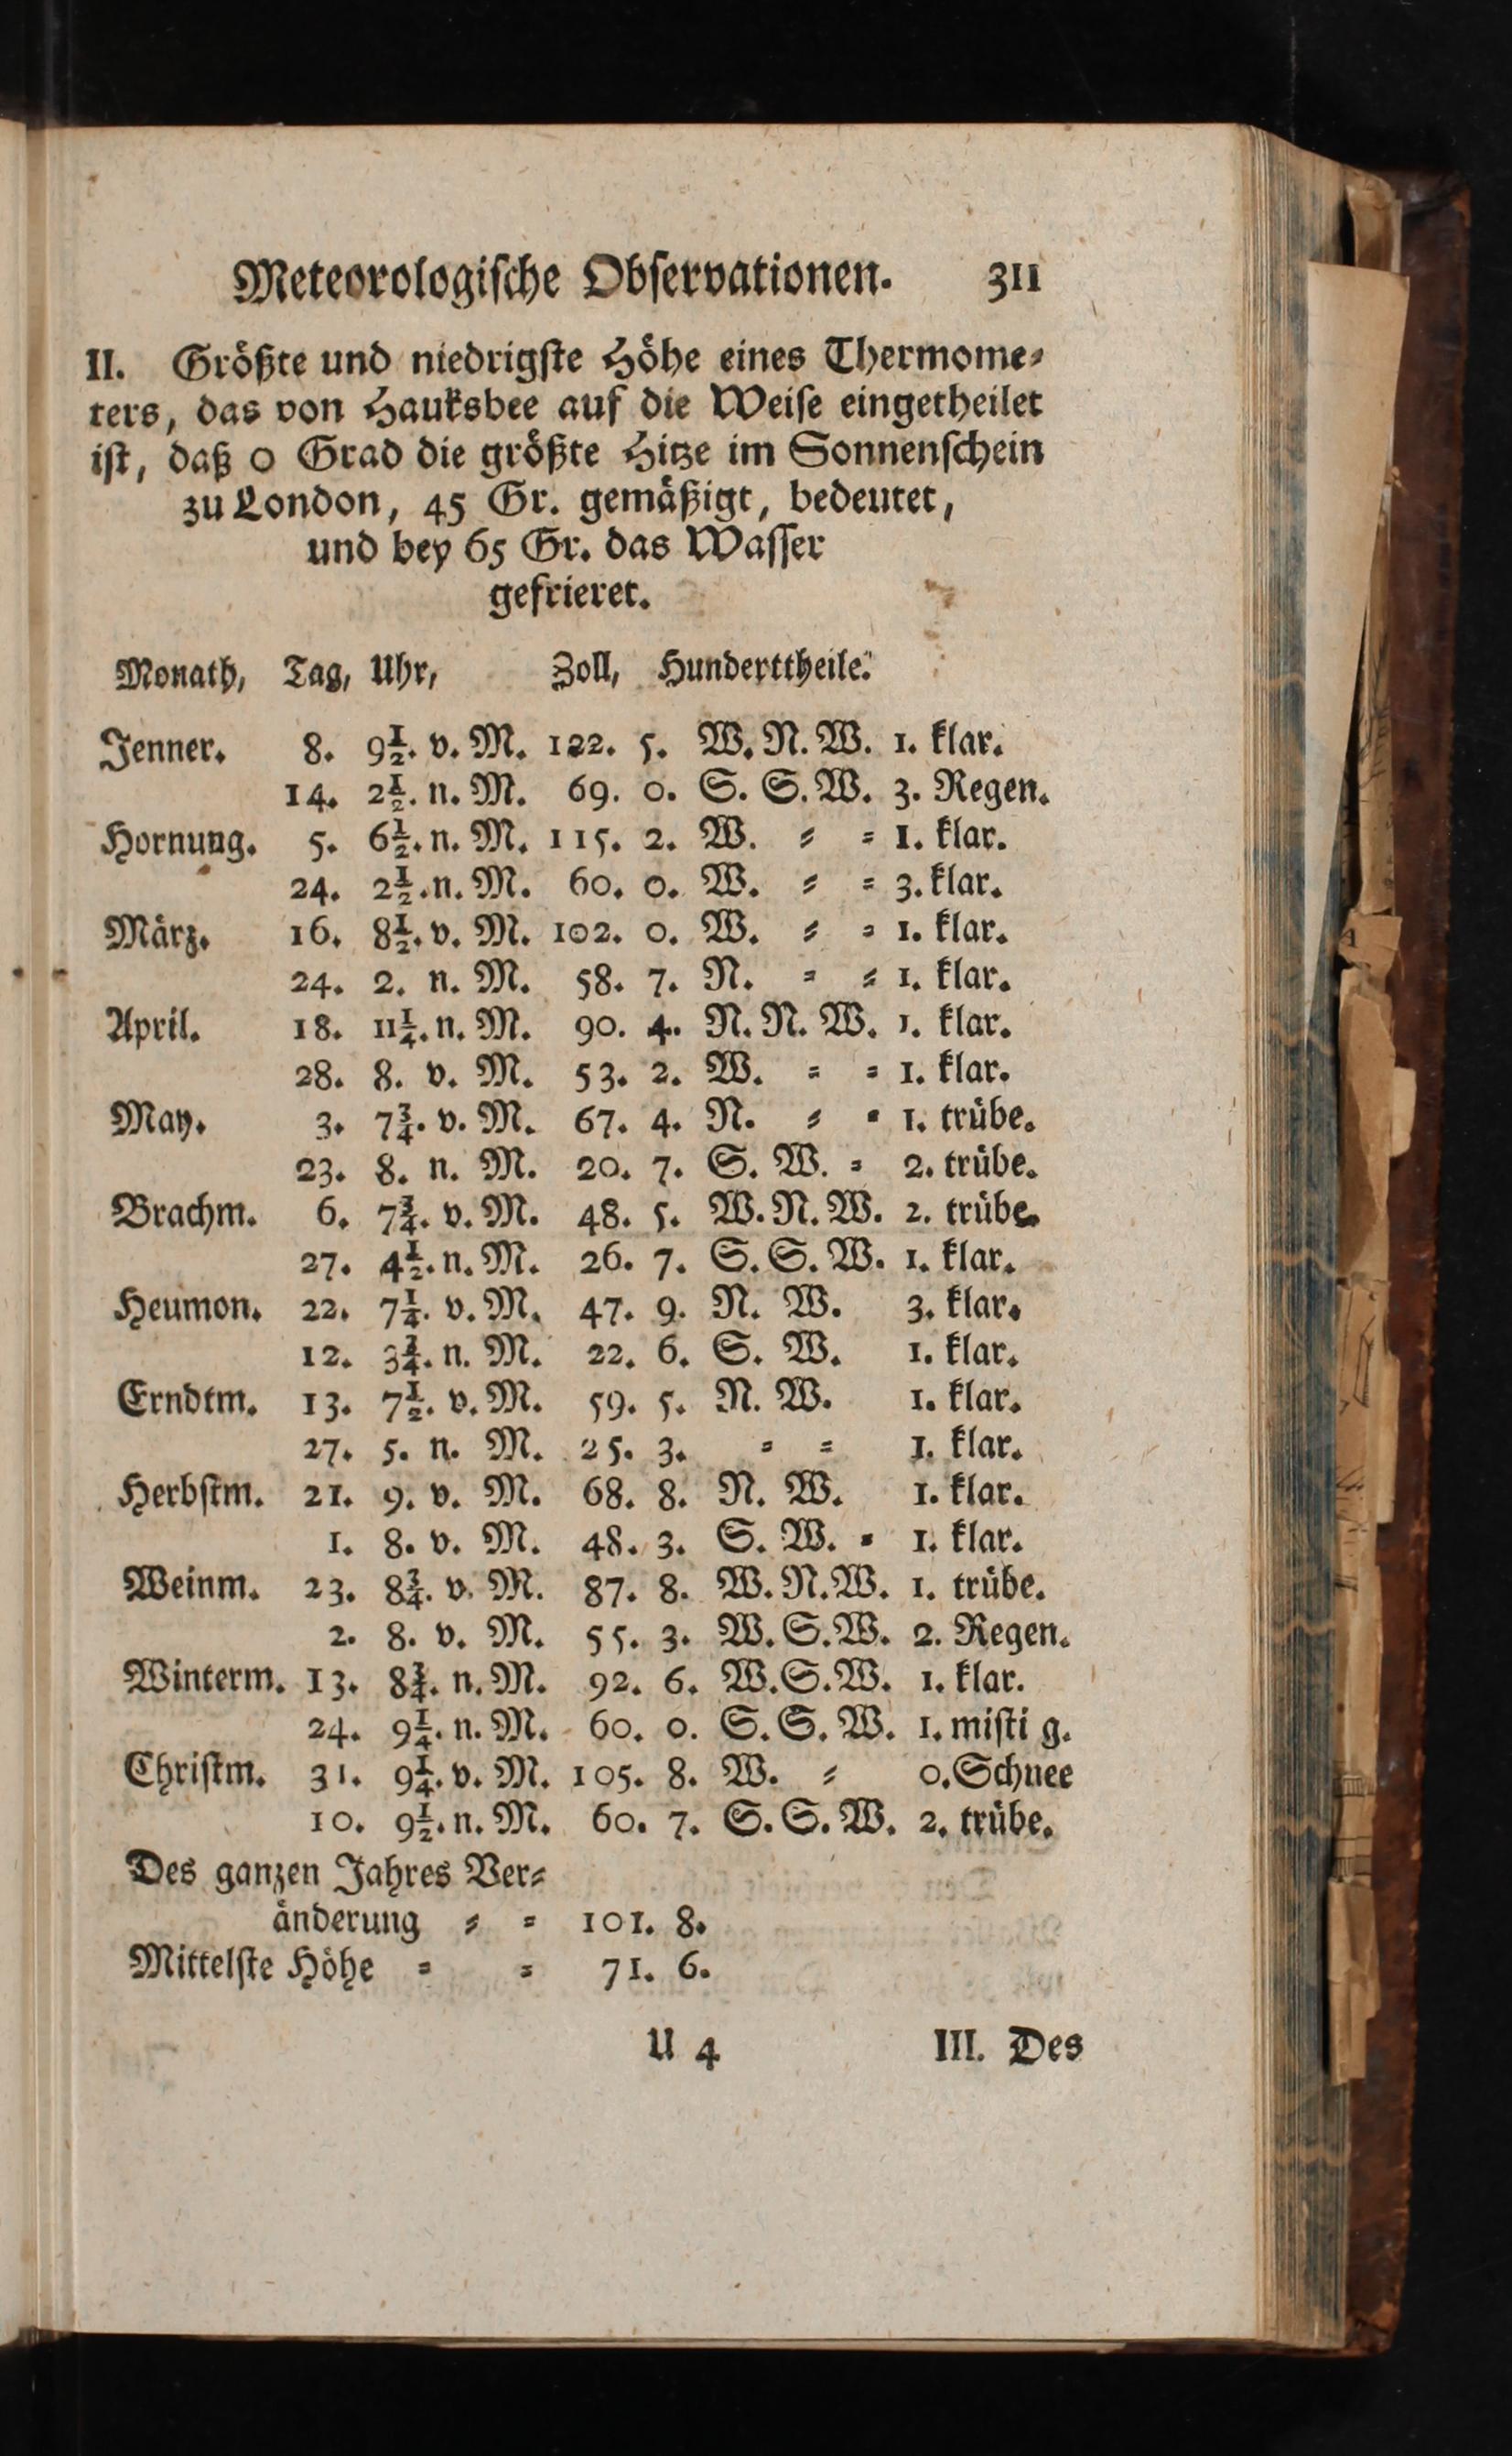 Meteorologiſche Obſervationen. 311
II. Größte und niedrigſte Höhe eines Thermome⸗
ters, das von Hauksbee auf die Weiſe eingetheilet
iſt, daß 0 Grad die größte Hitze im Sonnenſchein
zu London, 45 Gr. gemäßigt, bedeutet,
und bey 65 Gr. das Waſſer
gefrieret.
Monath, Tag, Uhr, Zoll, Hunderttheile.
Jenner. 8. 9½. v. M. 122. 5. W. N. W. 1. klar.
14. 2½. n. M. 69. 0. S. S. W. 3. Regen.
Hornung. 5. 6½. n. M. 115. 2. W. ⸗ ⸗ 1. klar.
24. 2½. n. M. 60. 0. W. ⸗ ⸗ 3. klar.
März. 16. 8½. v. M. 102. 0. W. ⸗ ⸗ 1. klar.
24. 2. n. M. 58. 7. N. ⸗ ⸗ 1. klar.
April. 18. 11¼. n. M. 90. 4. N. N. W. 1. klar.
28. 8. v. M. 53. 2. W. ⸗ ⸗ 1. klar.
May. 3. 7¾. v. M. 67. 4. N. ⸗ ⸗ 1. trübe.
23. 8. n. M. 20. 7. S. W. ⸗ 2. trübe.
Brachm. 6. 7¾. v. M. 48. 5. W. N. W. 2. trübe.
27. 4½. n. M. 26. 7. S. S. W. 1. klar.
Heumon. 22. 7¼. v. M. 47. 9. N. W. 3. klar.
12. 3¾. n. M. 22. 6. S. W. 1. klar.
Erndtm. 13. 7½. v. M. 59. 5. N. W. 1. klar.
27. 5. n. M. 25. 3. ⸗ ⸗ 1. klar.
Herbſtm. 21. 9. v. M. 68. 8. N. W. 1. klar.
1. 8. v. M. 48. 3. S. W. ⸗ 1. klar.
Weinm. 23. 8¾. v. M. 87. 8. W. N. W. 1. trübe.
2. 8. v. M. 55. 3. W. S. W. 2. Regen.
Winterm. 13. 8¾. n. M. 92. 6. W. S. W. 1. klar.
24. 9¼. n. M. 60. 0. S. S. W. 1. miſti g.
Chriſtm. 31. 9¼. v. M. 105. 8. W. ⸗ 0. Schnee
10. 9½. n. M. 60. 7. S. S. W. 2. trübe.
Des ganzen Jahres Ver⸗
änderung ⸗ ⸗ 101. 8.
Mittelſte Höhe ⸗ ⸗ 71. 6.
U 4 III. Des